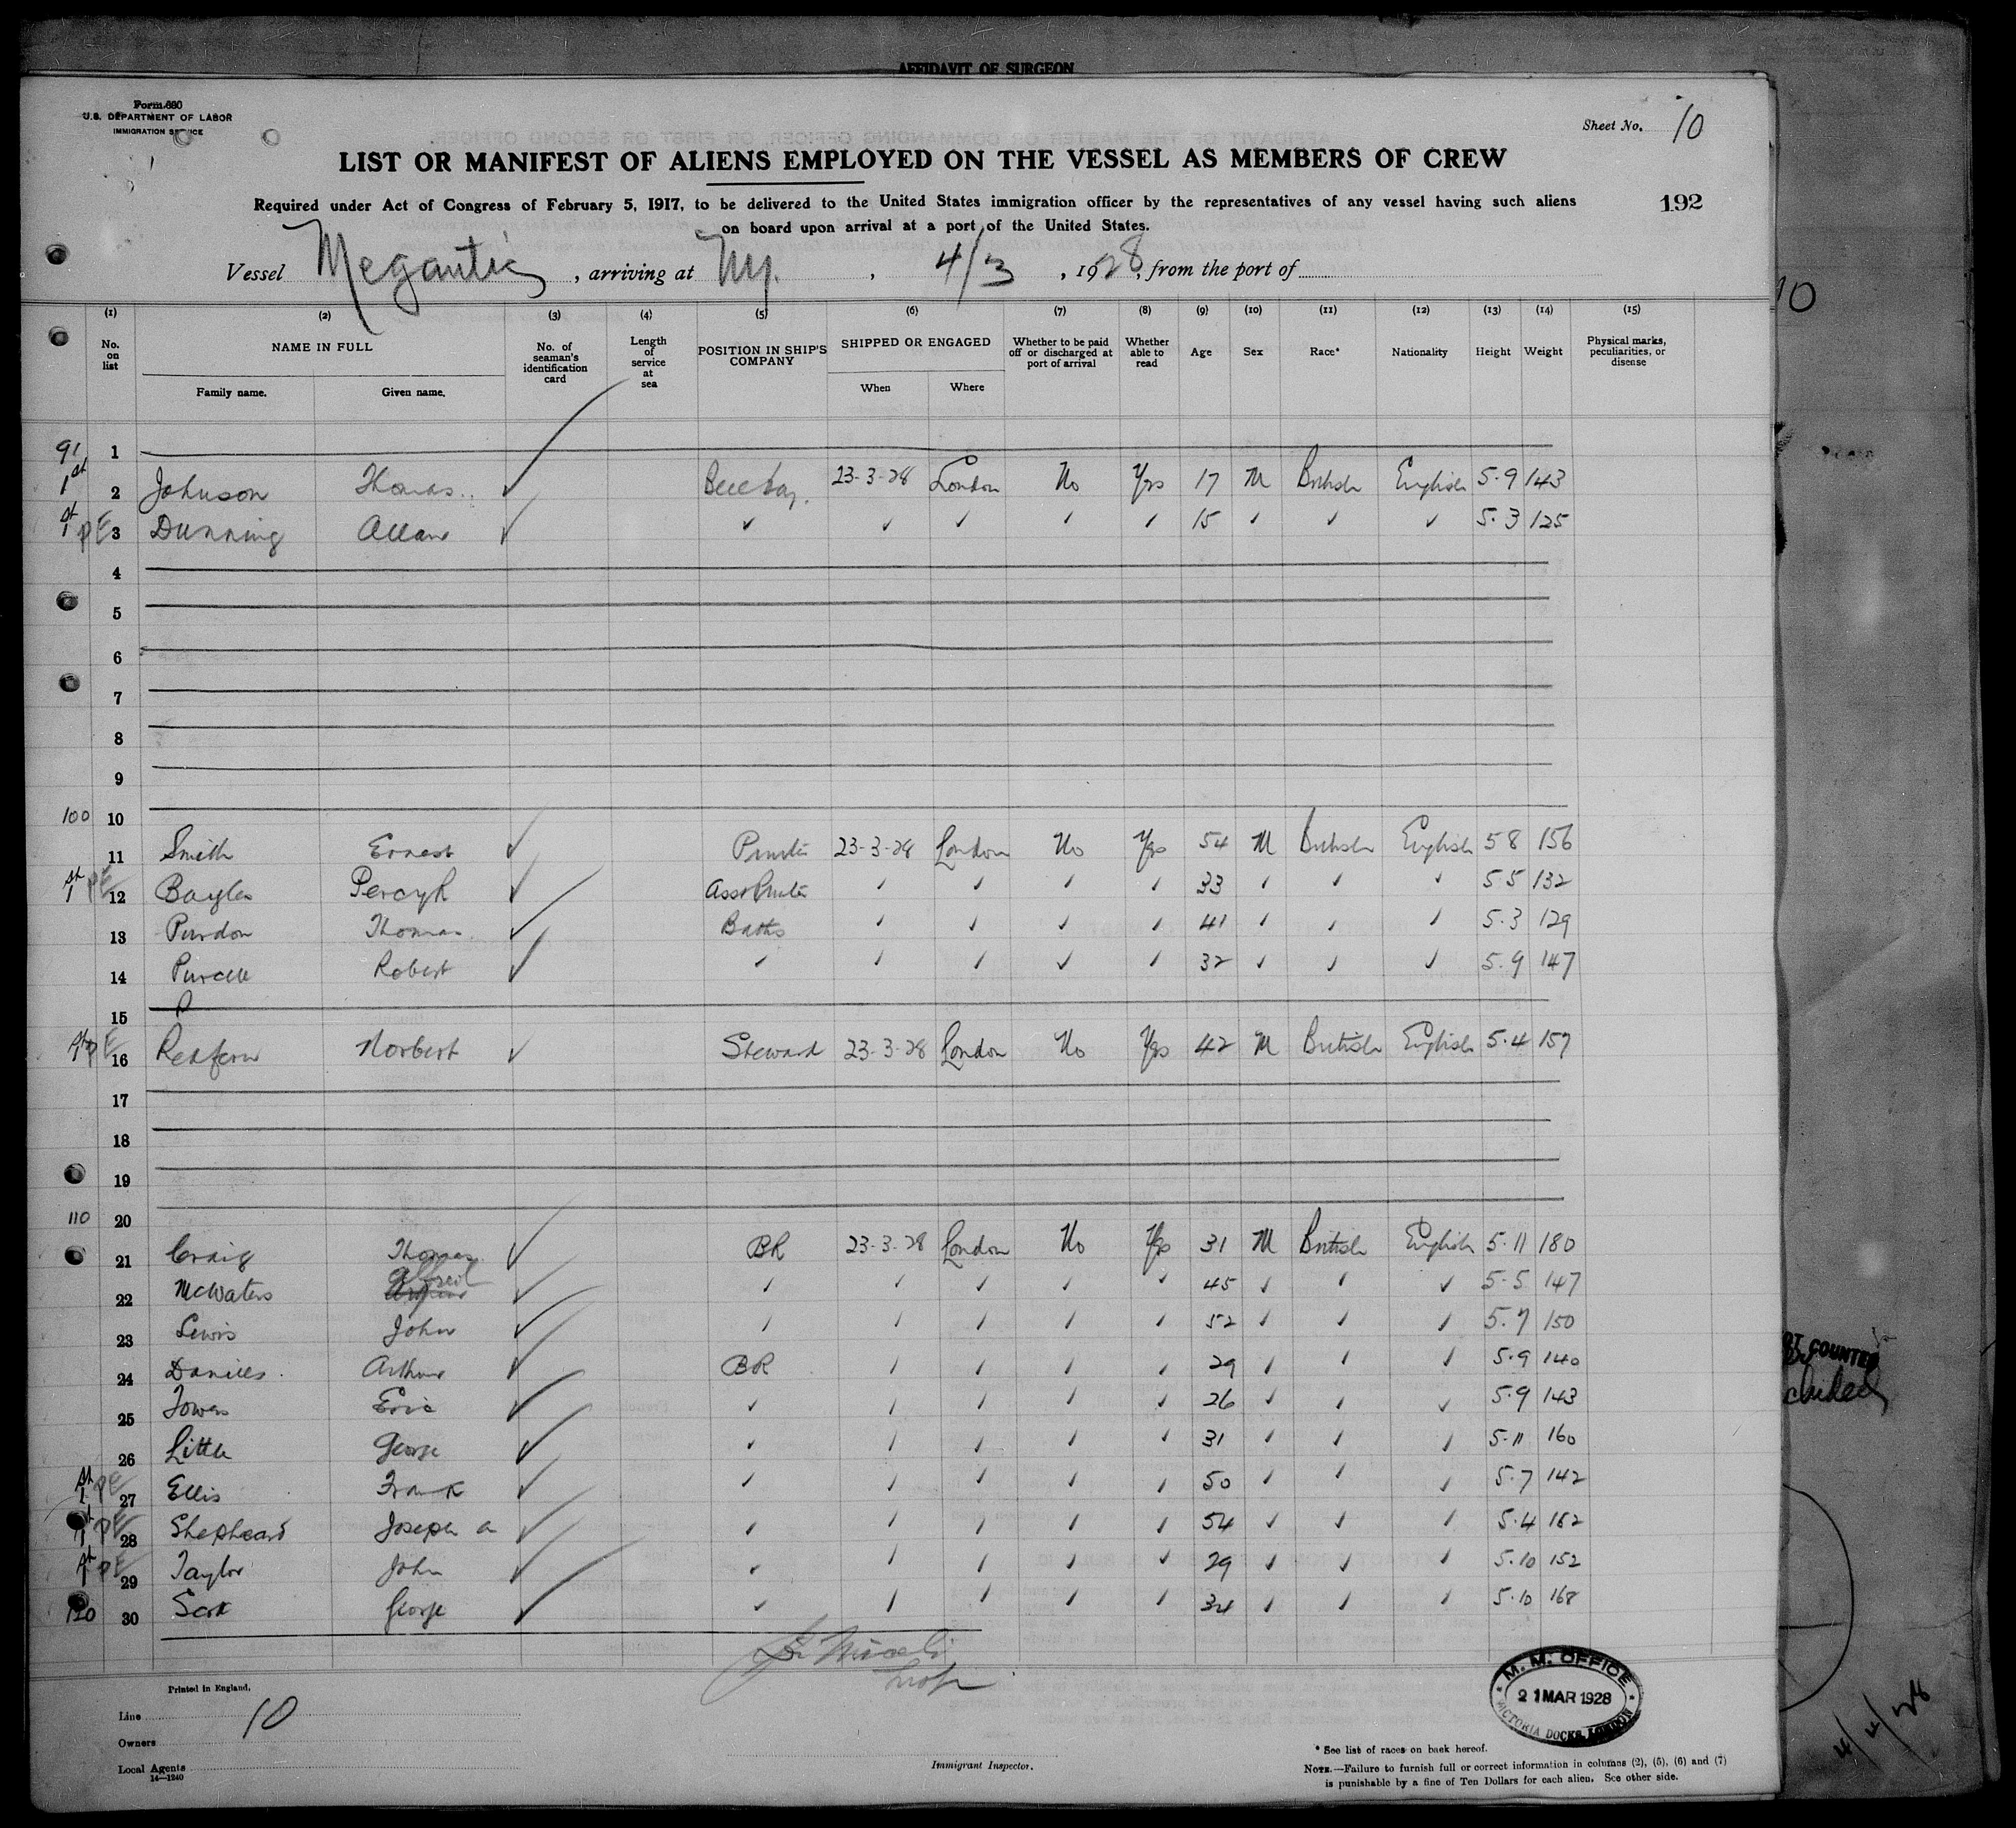 AFFIDAVIT OF SURGEON
Form 680
U.S. DEPARTMENT OF LABOR
IMMIGRATION SERVICE
Sheet No. 10
LIST OR MANIFEST OF ALIENS EMPLOYED ON THE VESSEL AS MEMBERS OF CREW
Required under Act of Congress of February 5, 1917, to be delivered to the United States immigration officer by the representatives of any vessel having such aliens
192
on board upon arrival at a port of the United States.
Vessel Megantic, arriving at NY., 4/3, 1928, from the port of
10
(1) (2) (3) (4) (5) (6) (7) (8) (9) (10) (11) (12) (13) (14) (15)
No. on list NAME IN FULL Family name. Given name. No. of seaman's identification card Length of service at sea POSITION IN SHIP'S COMPANY SHIPPED OR ENGAGED When Where Whether to be paid off or discharged at port of arrival Whether able to read Age Sex Race* Nationality Height Weight Physical marks, peculiarities, or disease
91 1
1st 2 Johnson Thomas ✓ Bell boy. 23-3-28 London No Yes 17 M British English 5.9 143
1st PE 3 Dunning Allan ✓ ✓ ✓ ✓ ✓ ✓ 15 ✓ ✓ ✓ 5.3 125
4
5
6
7
8
9
100 10
11 Smith Ernest ✓ Printer 23-3-28 London No Yes 54 M British English 5 8 156
1st PE 12 Bayles Percy R ✓ Asst Printer ✓ ✓ ✓ ✓ 33 ✓ ✓ ✓ 5 5 132
13 Purdon Thomas ✓ Baths ✓ ✓ ✓ ✓ 41 ✓ ✓ ✓ 5.3 129
14 Purcell Robert ✓ ✓ ✓ ✓ ✓ ✓ 32 ✓ ✓ ✓ 5.9 147
15
1st PE 16 Redfern Norbert ✓ Steward 23-3-28 London No Yes 42 M British English 5.4 157
17
18
19
110 20
21 Craig Thomas ✓ BR 23-3-28 London No Yes 31 M British English 5.11 180
22 McWaters Alfred ✓ ✓ ✓ ✓ ✓ ✓ 45 ✓ ✓ ✓ 5.5 147
23 Lewis John ✓ ✓ ✓ ✓ ✓ ✓ 52 ✓ ✓ ✓ 5.7 150
24 Daniels Arthur ✓ BR ✓ ✓ ✓ ✓ 29 ✓ ✓ ✓ 5.9 140
25 Towers Eric ✓ ✓ ✓ ✓ ✓ ✓ 26 ✓ ✓ ✓ 5.9 143
26 Little George ✓ ✓ ✓ ✓ ✓ ✓ 31 ✓ ✓ ✓ 5.11 160
1st PE 27 Ellis Frank ✓ ✓ ✓ ✓ ✓ ✓ 50 ✓ ✓ ✓ 5.7 142
1st PE 28 Shepheard Joseph A ✓ ✓ ✓ ✓ ✓ ✓ 54 ✓ ✓ ✓ 5.4 162
1st PE 29 Taylor John ✓ ✓ ✓ ✓ ✓ ✓ 29 ✓ ✓ ✓ 5.10 152
120 30 Scott George ✓ ✓ ✓ ✓ ✓ ✓ 34 ✓ ✓ ✓ 5.10 168
COUNTED
Printed in England.
Line 10
Owners
Local Agents
14—1240
Immigrant Inspector.
M. M. OFFICE
21 MAR 1928
VICTORIA DOCKS, LONDON
* See list of races on back hereof.
NOTE.—Failure to furnish full or correct information in columns (2), (5), (6) and (7)
is punishable by a fine of Ten Dollars for each alien. See other side.
4/4/28